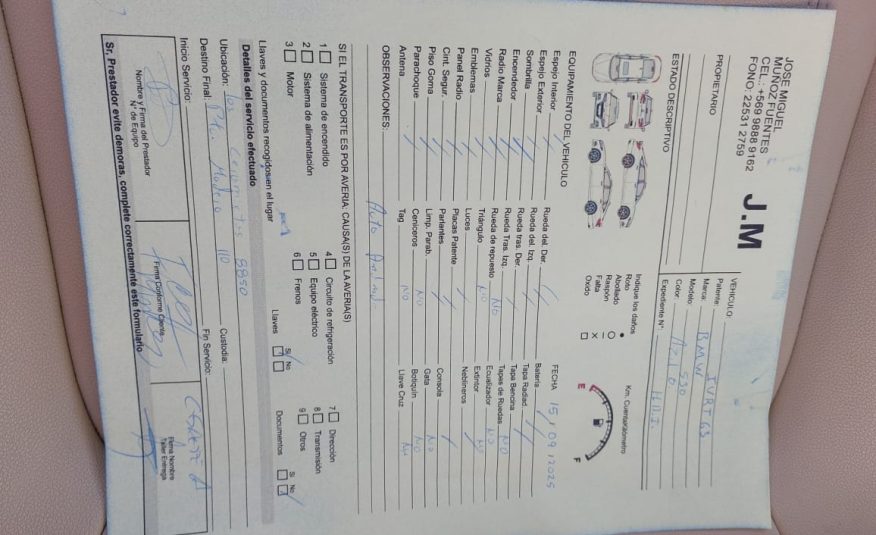 JOSE MIGUEL
MUÑOZ FUENTES
CEL.: +569 9888 9162
FONO: 22531 2759
J.M
PROPIETARIO
ESTADO DESCRIPTIVO
VEHICULO:
Patente: TVRT63
Marca: BMW
Modelo:
Color: AZUL
Expediente N°:
Indique los daños
Roto ●
Abollado O
Raspón –
Falta X
Oxido □
Km. Cuentakilómetro
E F
EQUIPAMIENTO DEL VEHICULO
FECHA 15/09/2025
Espejo Interior
Espejo Exterior
Sombrilla
Encendedor
Radio Marca
Vidrios
Emblemas
Panel Radio
Cint. Segur.
Piso Goma
Parachoque
Antena
Rueda del. Der.
Rueda del. Izq.
Rueda tras. Der.
Rueda Tras. Izq.
Rueda de repuesto NO
Triángulo NO
Luces
Placas Patente
Parlantes
Limp. Parab.
Ceniceros NO
Tag NO
Batería
Tapa Radiad.
Tapa Bencina
Tapas de Ruedas NO
Ecualizador NO
Extintor
Neblineros
Consola
Gata NO
Botiquín NO
Llave Cruz NO
OBSERVACIONES: Auto
SI EL TRANSPORTE ES POR AVERIA: CAUSA(S) DE LA AVERIA(S)
1 □ Sistema de encendido
2 □ Sistema de alimentación
3 □ Motor
4 □ Circuito de refrigeración
5 □ Equipo eléctrico
6 □ Frenos
7 □ Dirección
8 □ Transmisión
9 □ Otros
Llaves y documentos recogidos en el lugar
Llaves Si No
Documentos Si No
Detalles del servicio efectuado
Ubicación: Los 8850
Custodia:
Destino Final: Pte. Madero 110
Inicio Servicio:
Fin Servicio:
Nombre y Firma del Prestador
N° de Equipo
Firma Conforme Cliente
Firma Nombre
Taller Entrega
Sr. Prestador evite demoras, complete correctamente este formulario